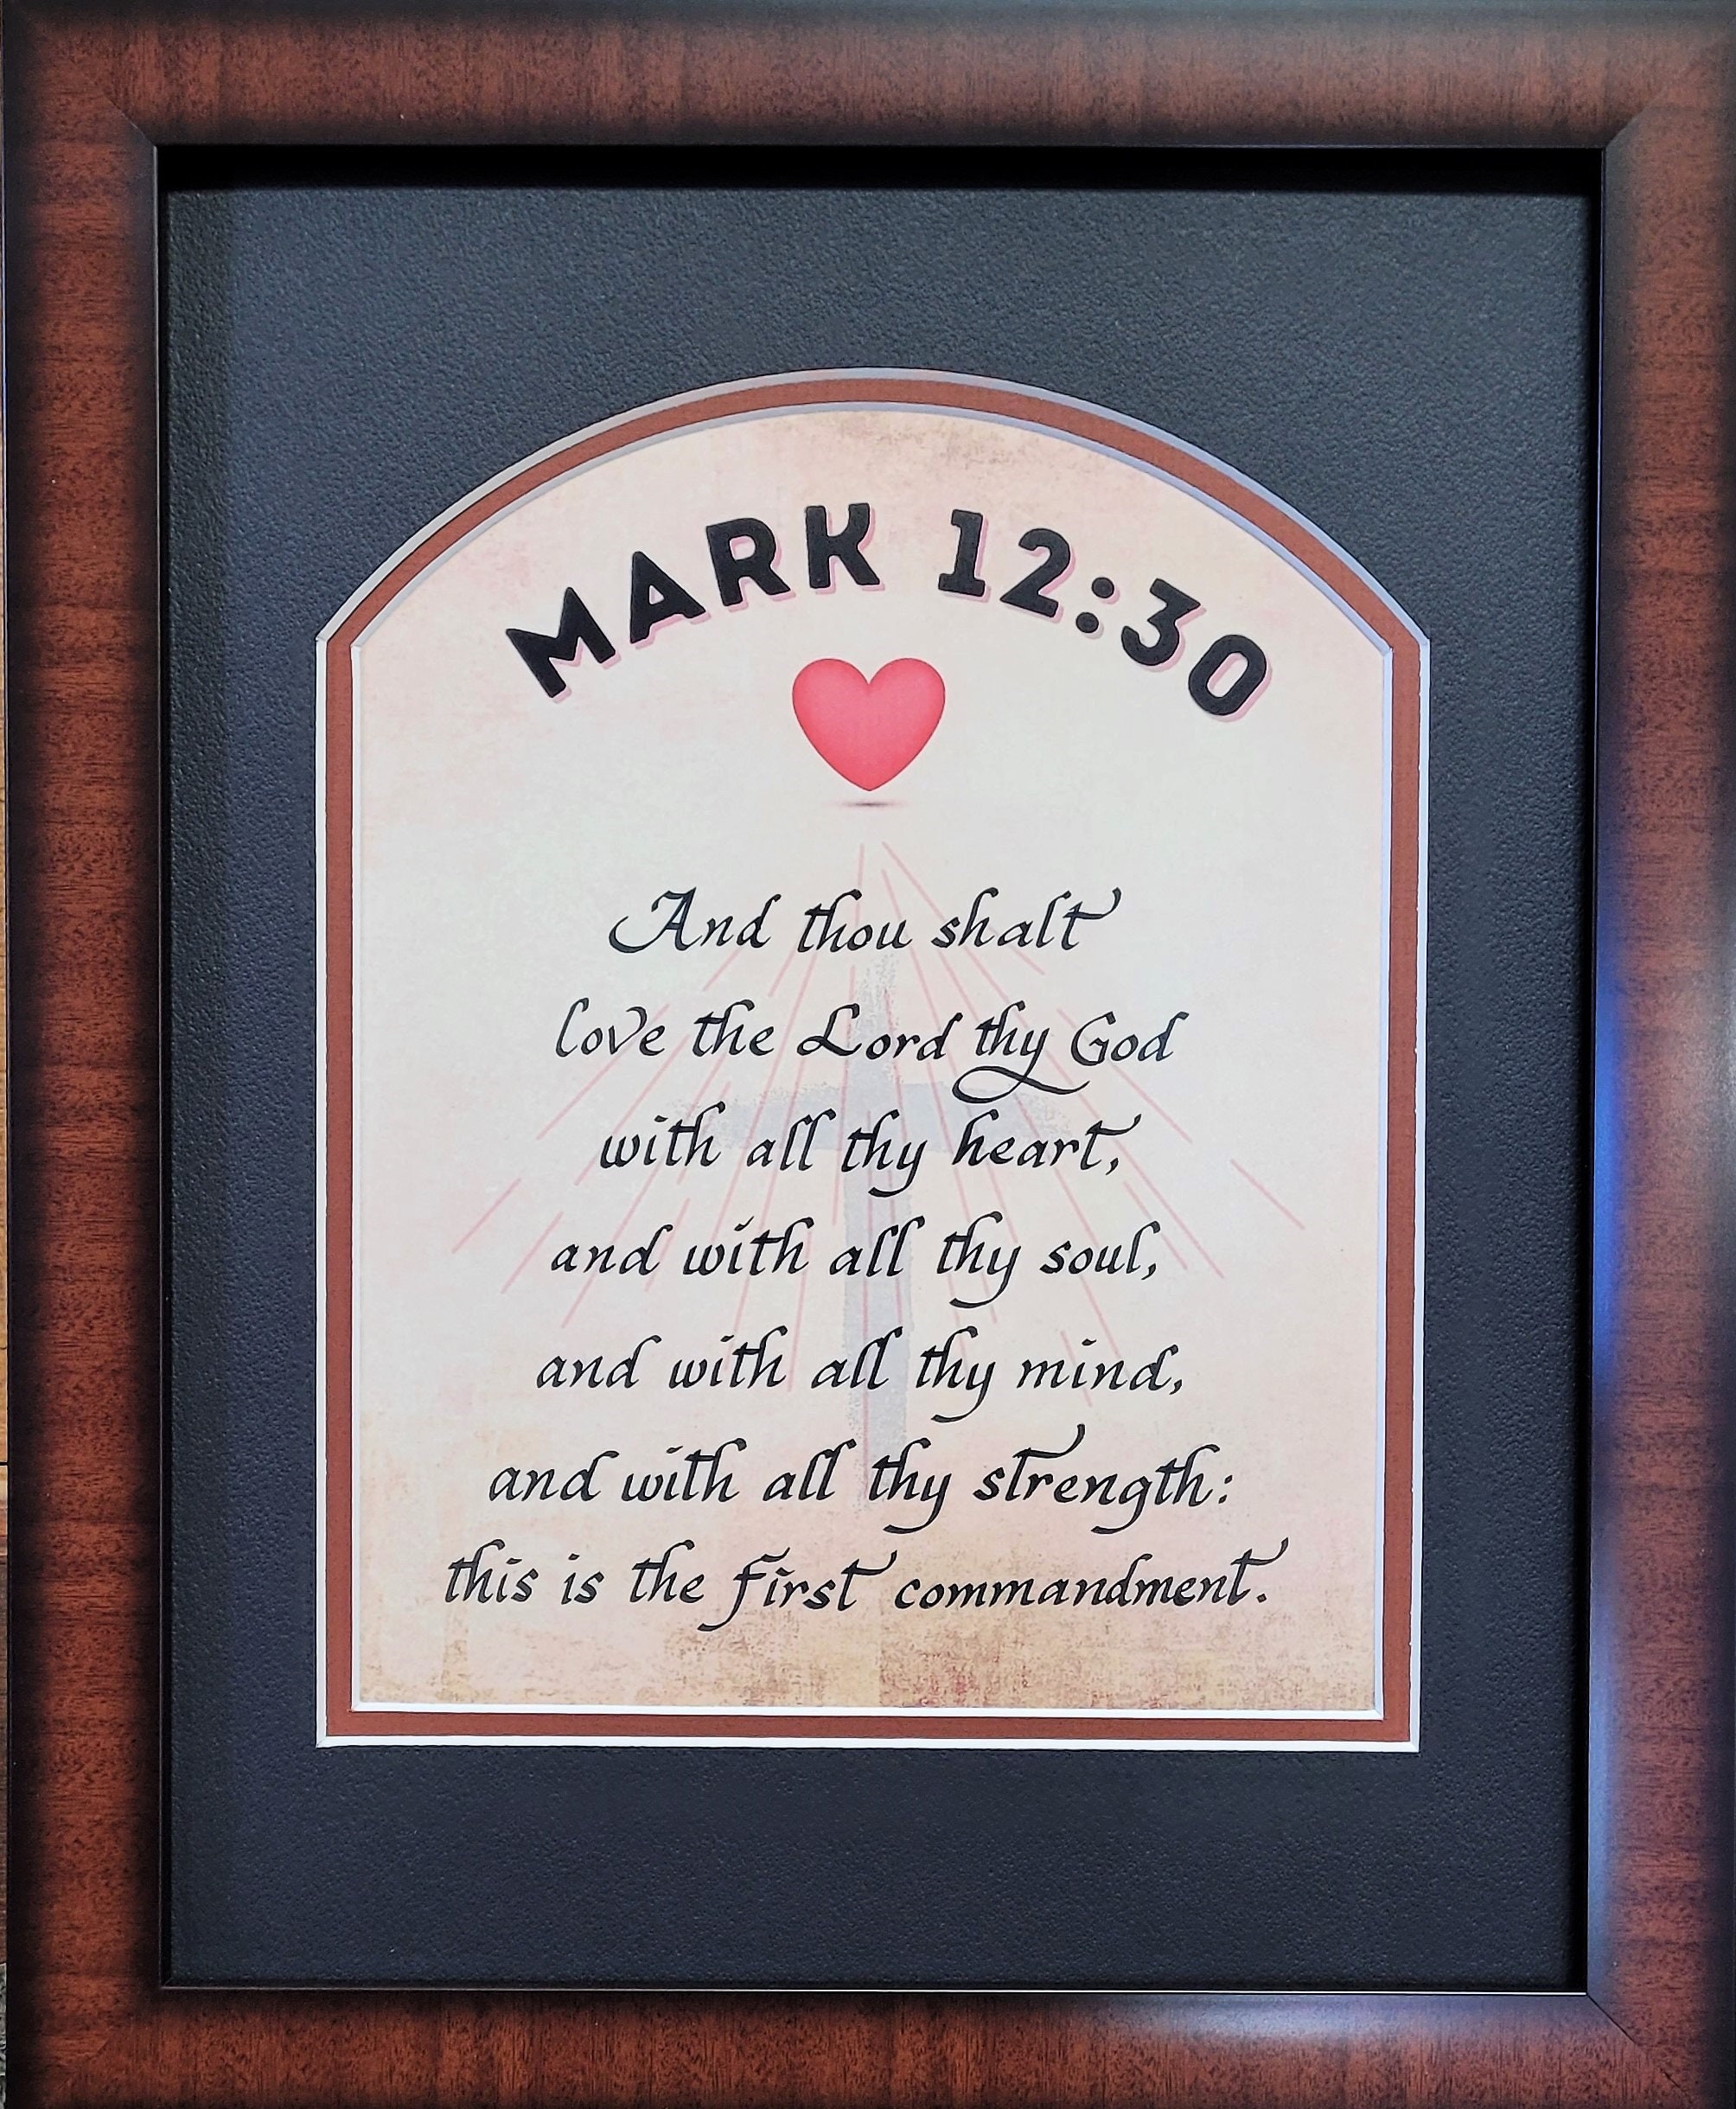 MARK 12:30
And thou shalt
love the Lord thy God
with all thy heart,
and with all thy soul,
and with all thy mind,
and with all thy strength:
this is the first commandment.